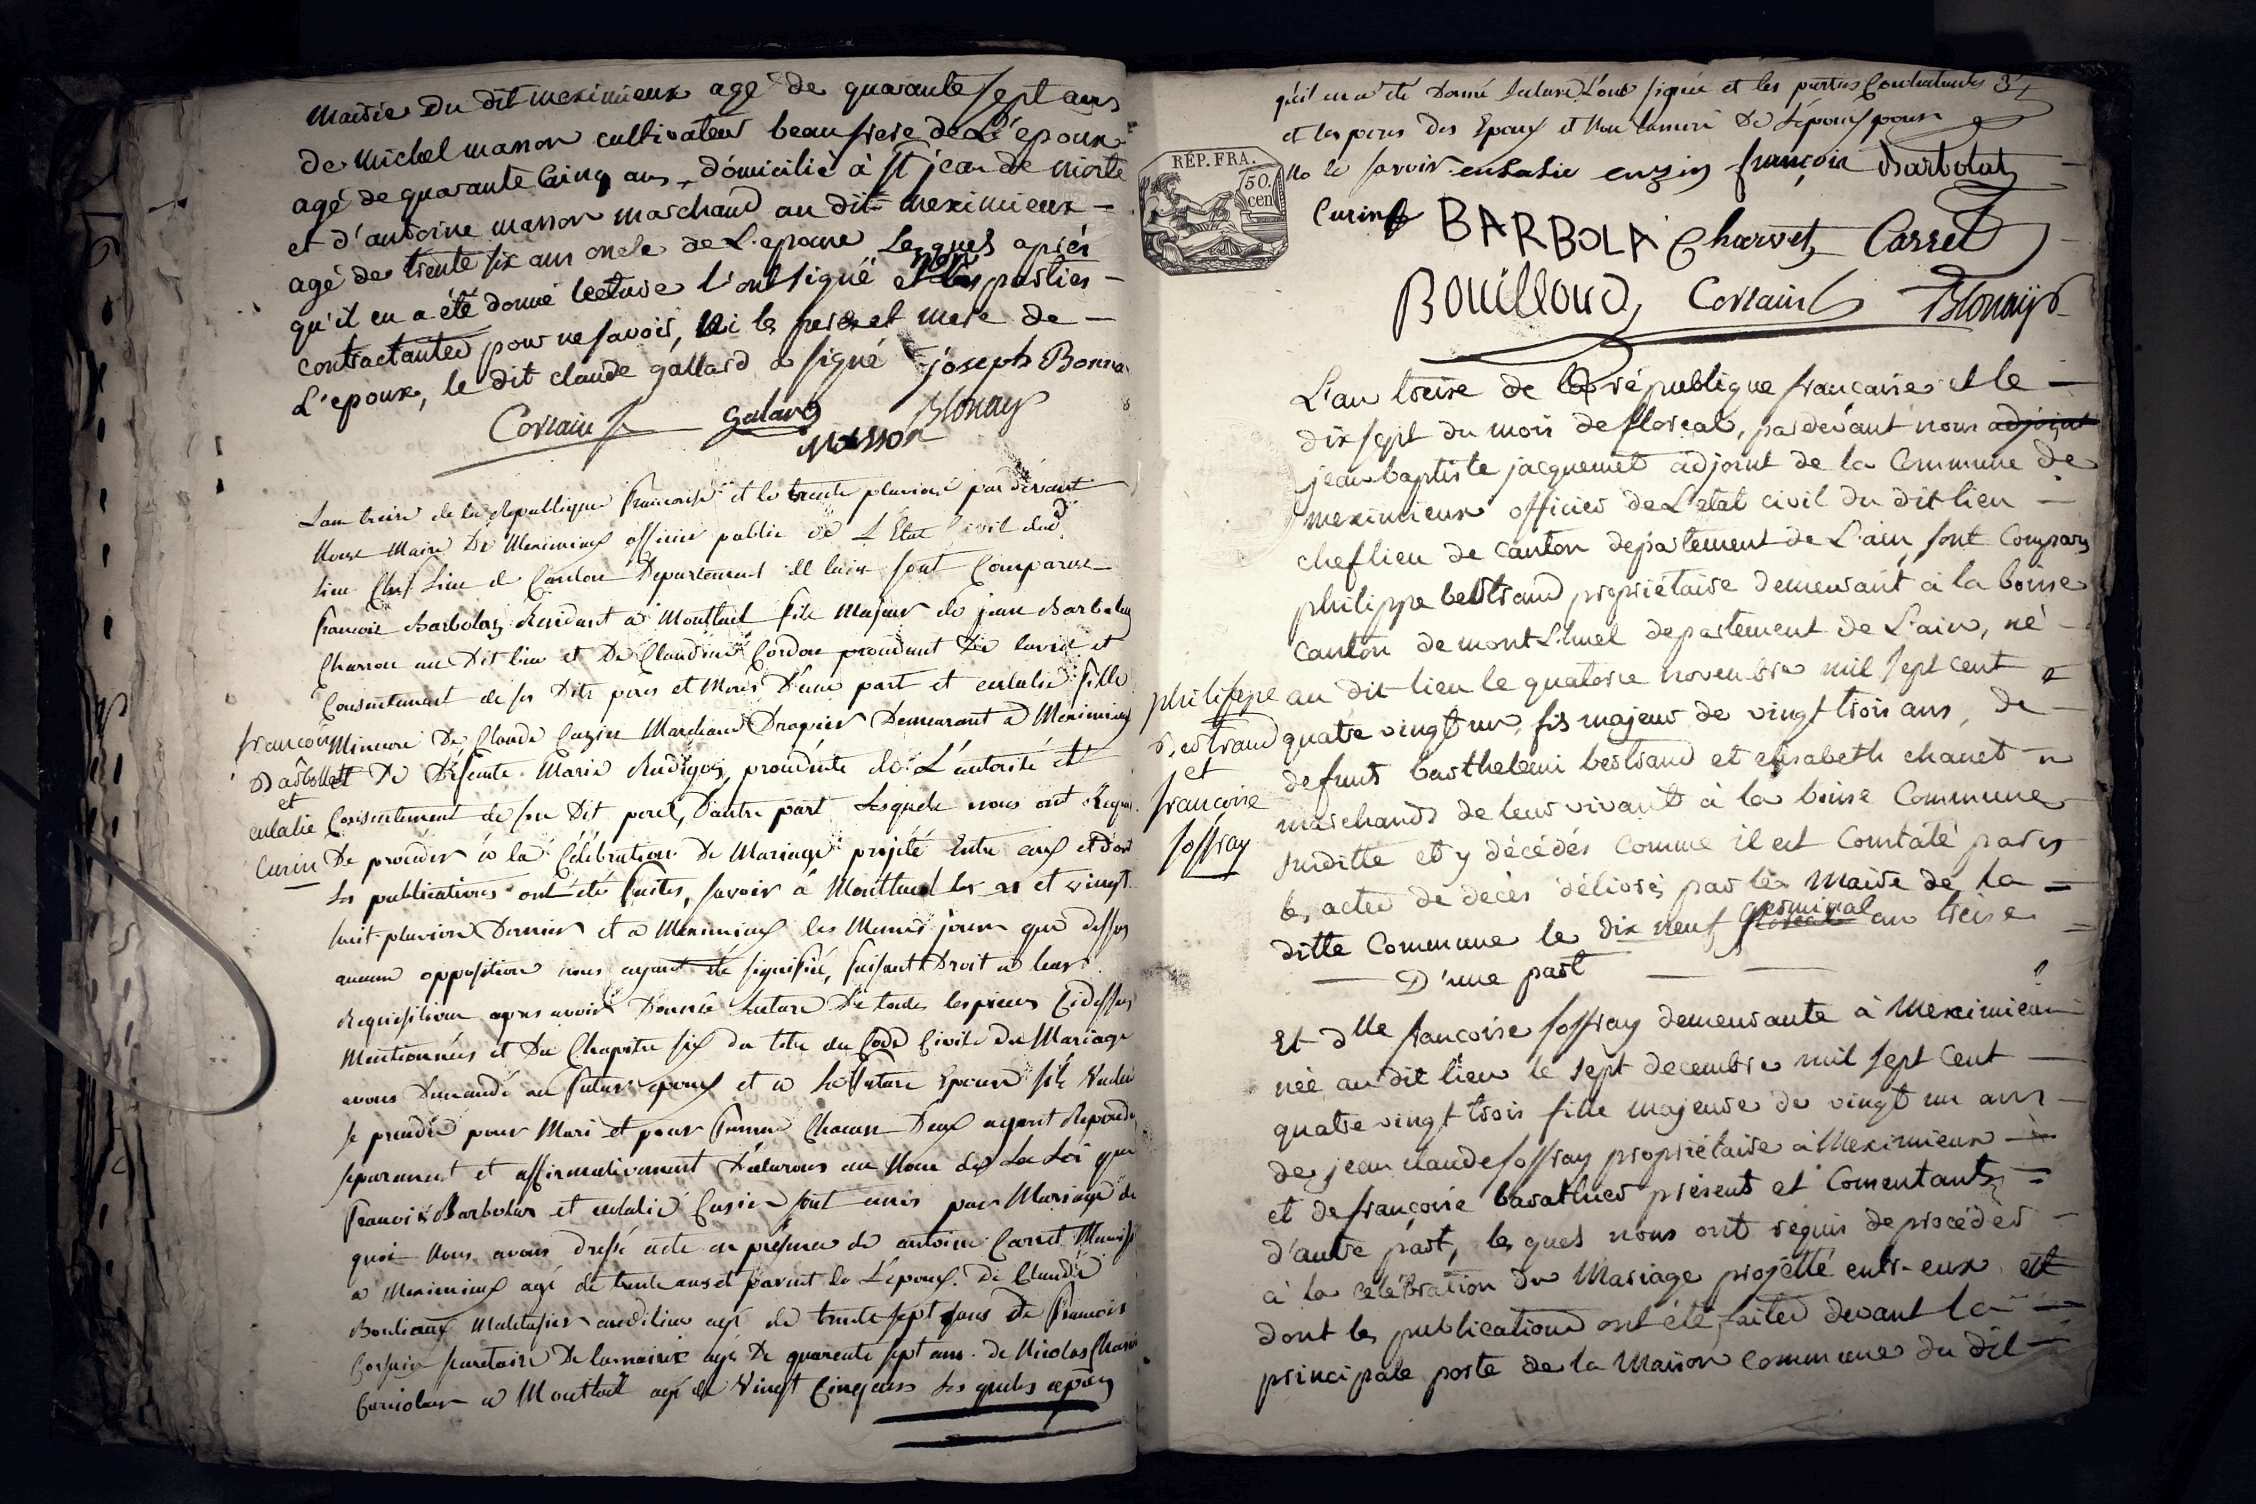 Mairie du dit meximieux agé de quarante sept ans
de michel masson cultivateur beau frere de L'epoux
agé de quarante Cinq ans, domicilié à St jean de niorte
et d'antoine masson marchand au dit meximieux
agé de trente six ans oncle de L'epouse Lesquels après
qu'il en a été donné lecture l'ont signé non les parties
contractantes pour ne savoir, ni les peres et mere de
L'epoux, le dit claude gallard a signé joseph Bonna
Corsain galard Blonay
Masson
Lan treize de la Republique francaise et le trente pluviose par devant
Nous Maire De Meximieux officier public de L'Etat Civil dud.
lieu Chef Lieu de Canton Departement de lain sont Comparus
francois Barbolat Residant a Montluel fils Majeur de jean Barbolat
Charron au Dit lieu et De Claudine Cordon procedant de lavis et
Consentement de ses Dits peres et Meres D'une part et eulalie fille
Mineure De Claude Cuzin Marchand Drapier Demeurant a Meximieux
et De Defunte Marie procedante de L'autorité et
Consentement de son Dit pere, D'autre part Lesquels nous ont Requis
De proceder a la Célébration De Mariage projeté Entre eux et dont
Les publications ont été faites, savoir à Montluel les et vingt
huit pluviose Dernier et a Meximieux les Memes jours que dessus
aucune opposition nous ayant été signifiée, faisant Droit a leur
Requisition apres avoir Donné Lecture De toutes les pieces Cidessus
Mentionnées et Du Chapitre six du titre du Code Civil Du Mariage
avons Demandé au futur epoux et a La future Epouse s'ils Veulent
se prendre pour Mari et pour femme Chacun Deux ayant Repondu
séparement et affirmativement Déclarons au Nom de La Loi que
francois Barbolat et eulalie Cusin sont unis par Mariage de
quoi Nous avons dressé acte en présence de antoine Carret
a Meximieux agé de trente ans et parent de L'époux. De Claude
audi lieu agé de trente sept ans De francois
Corsain secretaire De la mairie agé De quarente sept ans. de Nicolas
a Montluel agé de Vingt Cinq ans Les quels après
francois
Barbollat
et
eulalie
Cusin
qu'il en a été Donné Lecture L'ont signé et les parties Contractantes
et les peres des Epoux et Non la mere De L'époux pour
ne le savoir eulalie cuzin françois Barbolat
RÉP. FRA.
50.
cen
Curin BARBOLA Charvet Carret
Bouilloud Corsain Blonay
L'an treize de la république francaise et le
dix sept du mois de floreal, pardevant nous adjoint
jean baptiste jacquemet adjoint de la Commune de
meximieux officier de L'etat civil du dit lieu
chef lieu de canton departement de L'ain, sont Comparus
philippe bertrand propriétaire demeurant à la boisse
canton de mont Luel departement de L'ain, né
au dit lieu le quatorze novembre mil sept cent
quatre vingt un, fils majeur de vingt trois ans, de
defunts barthelemi bertrand et elisabeth chanet
marchands de leur vivant à la boisse Commune
susditte et y décédés comme il est Constaté par
les actes de decès délivrés par le Maire de la
ditte Commune le dix neuf floreal germinal an treize
D'une part
Et dlle francoise soffray demeurante à Meximieux
née au dit lieu le sept decembre mil sept Cent
quatre vingt trois fille majeure de vingt un ans
de jean claude soffray propriétaire à Meximieux
et de françoise barathier présents et Consentants
d'autre part, les quels nous ont requis de procéder
à la celébration du Mariage projetté entr-eux et
dont les publications ont été faites devant la
principale porte de la Maison commune du dit
philippe
bertrand
et
francoise
soffray